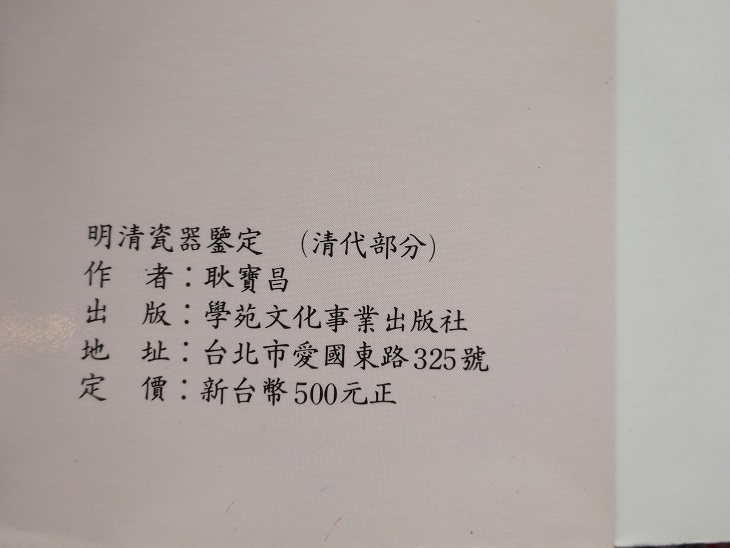 明清瓷器鑒定 (清代部分)
作 者:耿寶昌
出 版:學苑文化事業出版社
地 址:台北市愛國東路325號
定 價:新台幣500元正